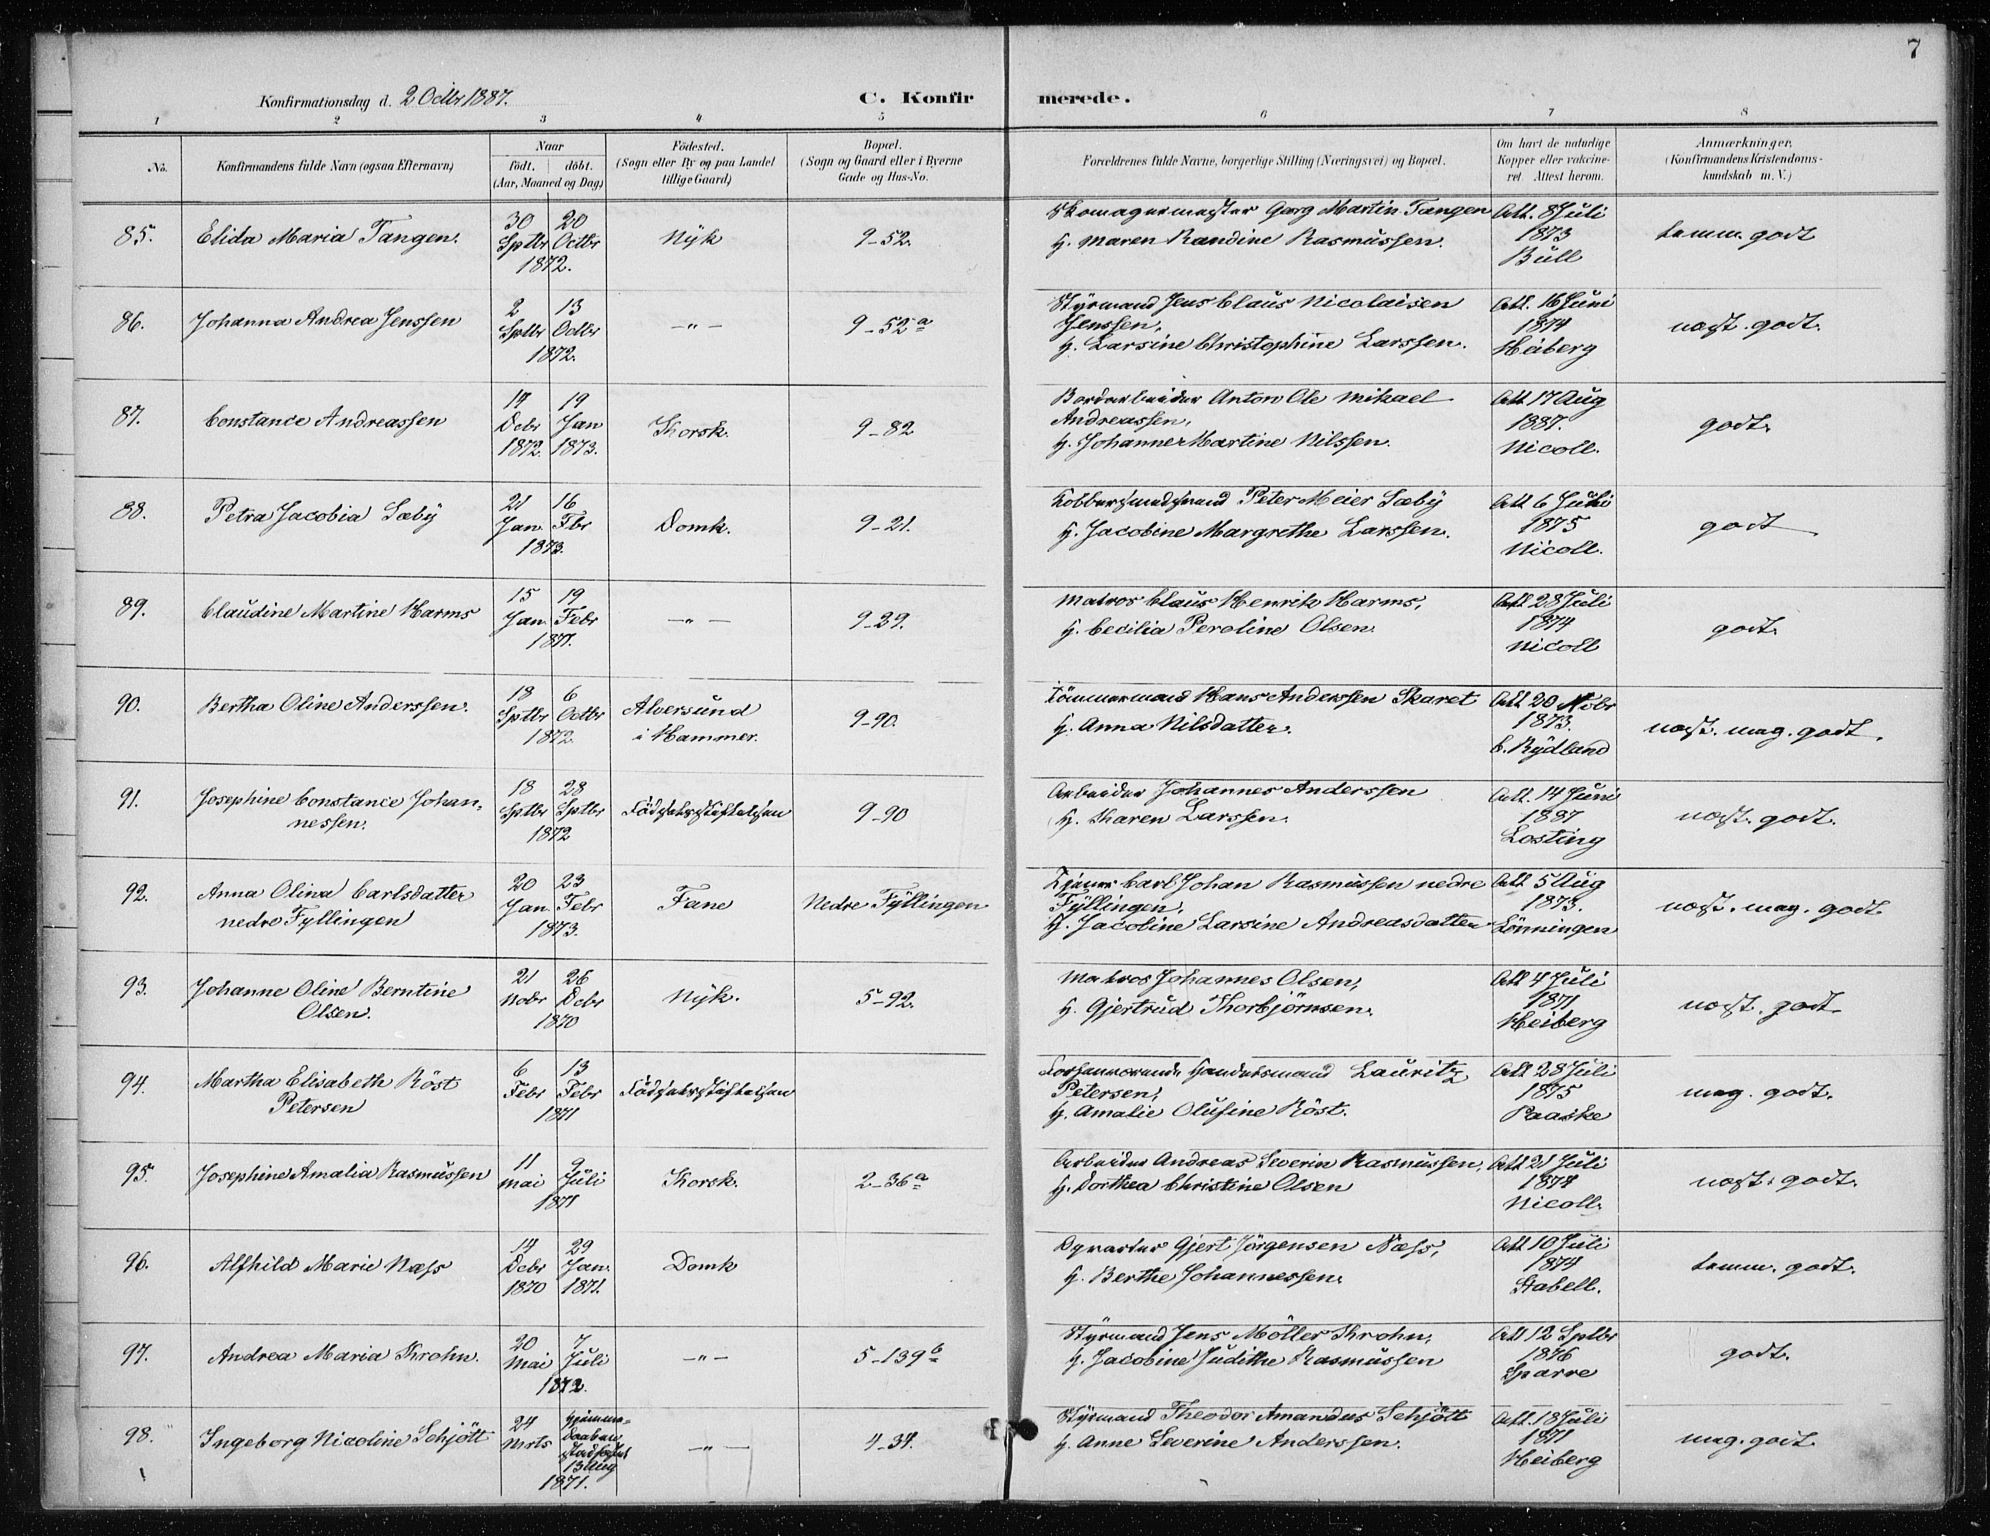 7
Konfirmationsdag d. 2 Octbr 1887.
C. Konfirmerede.
1 2 3 4 5 6 7 8
No.
Konfirmandens fulde Navn (ogsaa Efternavn)
Naar
födt. döbt.
(Aar, Maaned og Dag)
Födested.
(Sogn eller By og paa Landet
tillige Gaard)
Bopæl.
(Sogn og Gaard eller i Byerne
Gade og Hus-No.
Forældrenes fulde Navne, borgerlige Stilling (Næringsvei) og Bopæl.
Om havt de naturlige
Kopper eller vakcine-
ret. Attest herom.
Anmærkninger,
(Konfirmandens Kristendoms-
kundskab m. V.)
85. Elida Maria Tangen. 30 Sptbr 20 Octbr 1872. Nÿk 9-52.
Skomagermester Georg Martin Tangen
H. Maren Randine Rasmüssen.
Att. 8 Juli
1873
Büll
temm. godt
86. Johanna Andrea Jenssen 2 Sptbr 13 Octbr 1872. -"- 9-52a
Stÿrmand Jens Claus Nicolaisen
Jenssen,
H. Larsine Christophine Larssen.
Att. 16 Juni
1874
Heiberg
næst. godt.
87. Constance Andreassen 17 Dcbr 1872. 19 Jan 1873. Korsk. 9-82
Anton Ole Mikael
Andreassen,
H. Johanne Martine Nilssen.
Att 17 Aug
1887.
Nicoll.
godt.
88. Petra Jacobia Sæbÿ 21 Jan. 16 Fbr 1873. Domk. 9-21.
Peter Meier Sæbÿ
H. Jacobine Margrethe Larssen.
Att 6 Juli
1875
Nicoll.
godt
89. Claudine Martine Harms 15 Jan. 19 Febr 1871. -"- 9-29.
Matros Claus Henrik Harms,
H. Cecilia Peroline Olsen.
Att 28 Juli
1874
Nicoll
godt.
90. Bertha Oline Anderssen. 18 Sptbr 6 Octbr 1872. Alversund
i Hammer. 9-90.
Tömmermand Hans Anderssen Skaret
H. Anna Nilsdatter.
Att 20 Nobr
1873.
C. Rÿdland
næst. meg. godt.
91. Josephine Constance Johan-
nessen. 18 Sptbr 28 Sptbr 1872 Födselsstiftelsen 9-90
Arbeider Johannes Anderssen
H. Karen Larssen.
Att. 14 Juni
1887
Losting
næst. godt.
92. Anna Olina Carlsdatter
nedre Fyllingen 20 Jan. 23 Febr 1873. Fane Nedre Fÿllingen
Carl Johan Rasmüssen nedre
Fÿllingen,
H. Jacoline Larsine Andreasdatter
Att 5 Aug
1873.
Lönningen
næst. meg. godt
93. Johanne Oline Berntine
Olsen. 21 Nobr 26 Dcbr 1870 Nÿk. 5-92.
Matros Johannes Olsen,
H. Gjertrud Thorbjörnsen.
Att 4 Juli
1871
Heiberg
næst. godt.
94. Martha Elisabeth Röst
Petersen 6 Febr 13 Febr 1871 Födselsstiftelsen
Handelsmand Lauritz
Petersen,
H. Amalie Olufine Röst.
Att 28 Juli
1875
Raaske
meg. godt.
95. Josephine Amalia Rasmüssen 11 Mai 9 Juli 1871 Korsk. 2-36a
Arbeider Andreas Severin Rasmüssen,
H. Dorthea Christine Olsen
Att 21 Juli
1878
Nicoll.
næst. godt.
96. Alfhild Marie Næss 14 Dcbr 1870 29 Jan. 1871. Domk
Gjert Jörgensen Næss,
H. Berthe Johannessen.
Att 10 Juli
1874
Stabell.
temm. godt.
97. Andrea Maria Krohn. 20 Mai 7 Juli 1872. -"- 5-139b
Stÿrmand Jens Möller Krohn,
H. Jacobine Judithe Rasmüssen
Att 12 Sptbr
1876
Sparre
godt.
98. Ingeborg Nicoline Schjött 24 Mrts Hjemme-
Daaben
stadfæstet
13 Aug
1871. -"- 4-34.
Stÿrmand Theodor Amandus Schjött
H. Anne Severine Anderssen.
Att. 18 Juli
1871
Heiberg
meg. godt